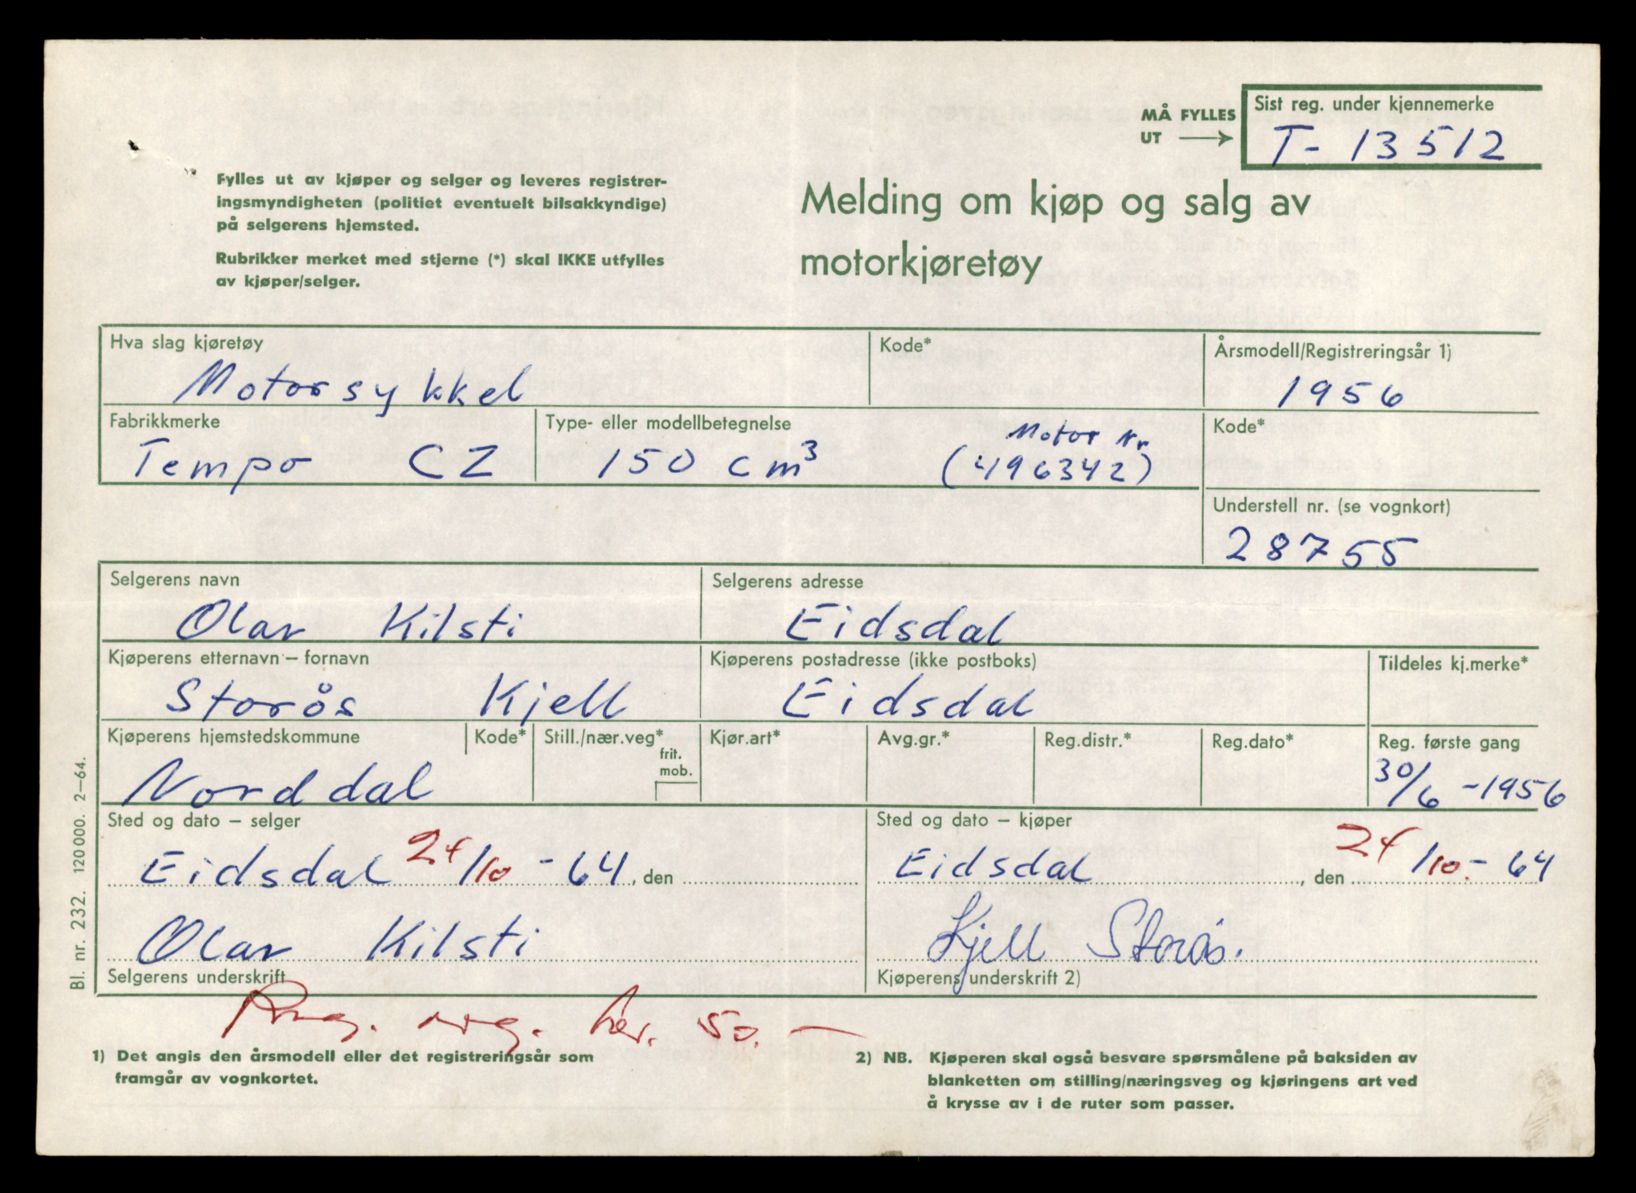 MÅ FYLLES
UT
Sist reg. under kjennemerke
T- 13512
Fylles ut av kjøper og selger og leveres registrer-
ingsmyndigheten (politiet eventuelt bilsakkyndige)
på selgerens hjemsted.
Rubrikker merket med stjerne (*) skal IKKE utfylles
av kjøper/selger.
Melding om kjøp og salg av
motorkjøretøy
Hva slag kjøretøy
Motorsykkel
Kode*
Årsmodell/Registreringsår 1)
1956
Fabrikkmerke
Tempo CZ
Type- eller modellbetegnelse
150 cm³
Motor Nr
(496342)
Kode*
Understell nr. (se vognkort)
28755
Selgerens navn
Olav Kilsti
Selgerens adresse
Eidsdal
Kjøperens etternavn – fornavn
Storås Kjell
Kjøperens postadresse (ikke postboks)
Eidsdal
Tildeles kj.merke*
Kjøperens hjemstedskommune
Norddal
Kode*
Still./nær.veg*
frit.
mob.
Kjør.art*
Avg.gr.*
Reg.distr.*
Reg.dato*
Reg. første gang
30/6 -1956
Sted og dato – selger
Eidsdal 24/10 - 64, den
Sted og dato – kjøper
Eidsdal, den 24/10.- 64
Olav Kilsti
Selgerens underskrift
Kjell Storås.
Kjøperens underskrift 2)
50.-
1) Det angis den årsmodell eller det registreringsår som
framgår av vognkortet.
2) NB. Kjøperen skal også besvare spørsmålene på baksiden av
blanketten om stilling/næringsveg og kjøringens art ved
å krysse av i de ruter som passer.
Bl. nr. 232. 120000. 2–64.